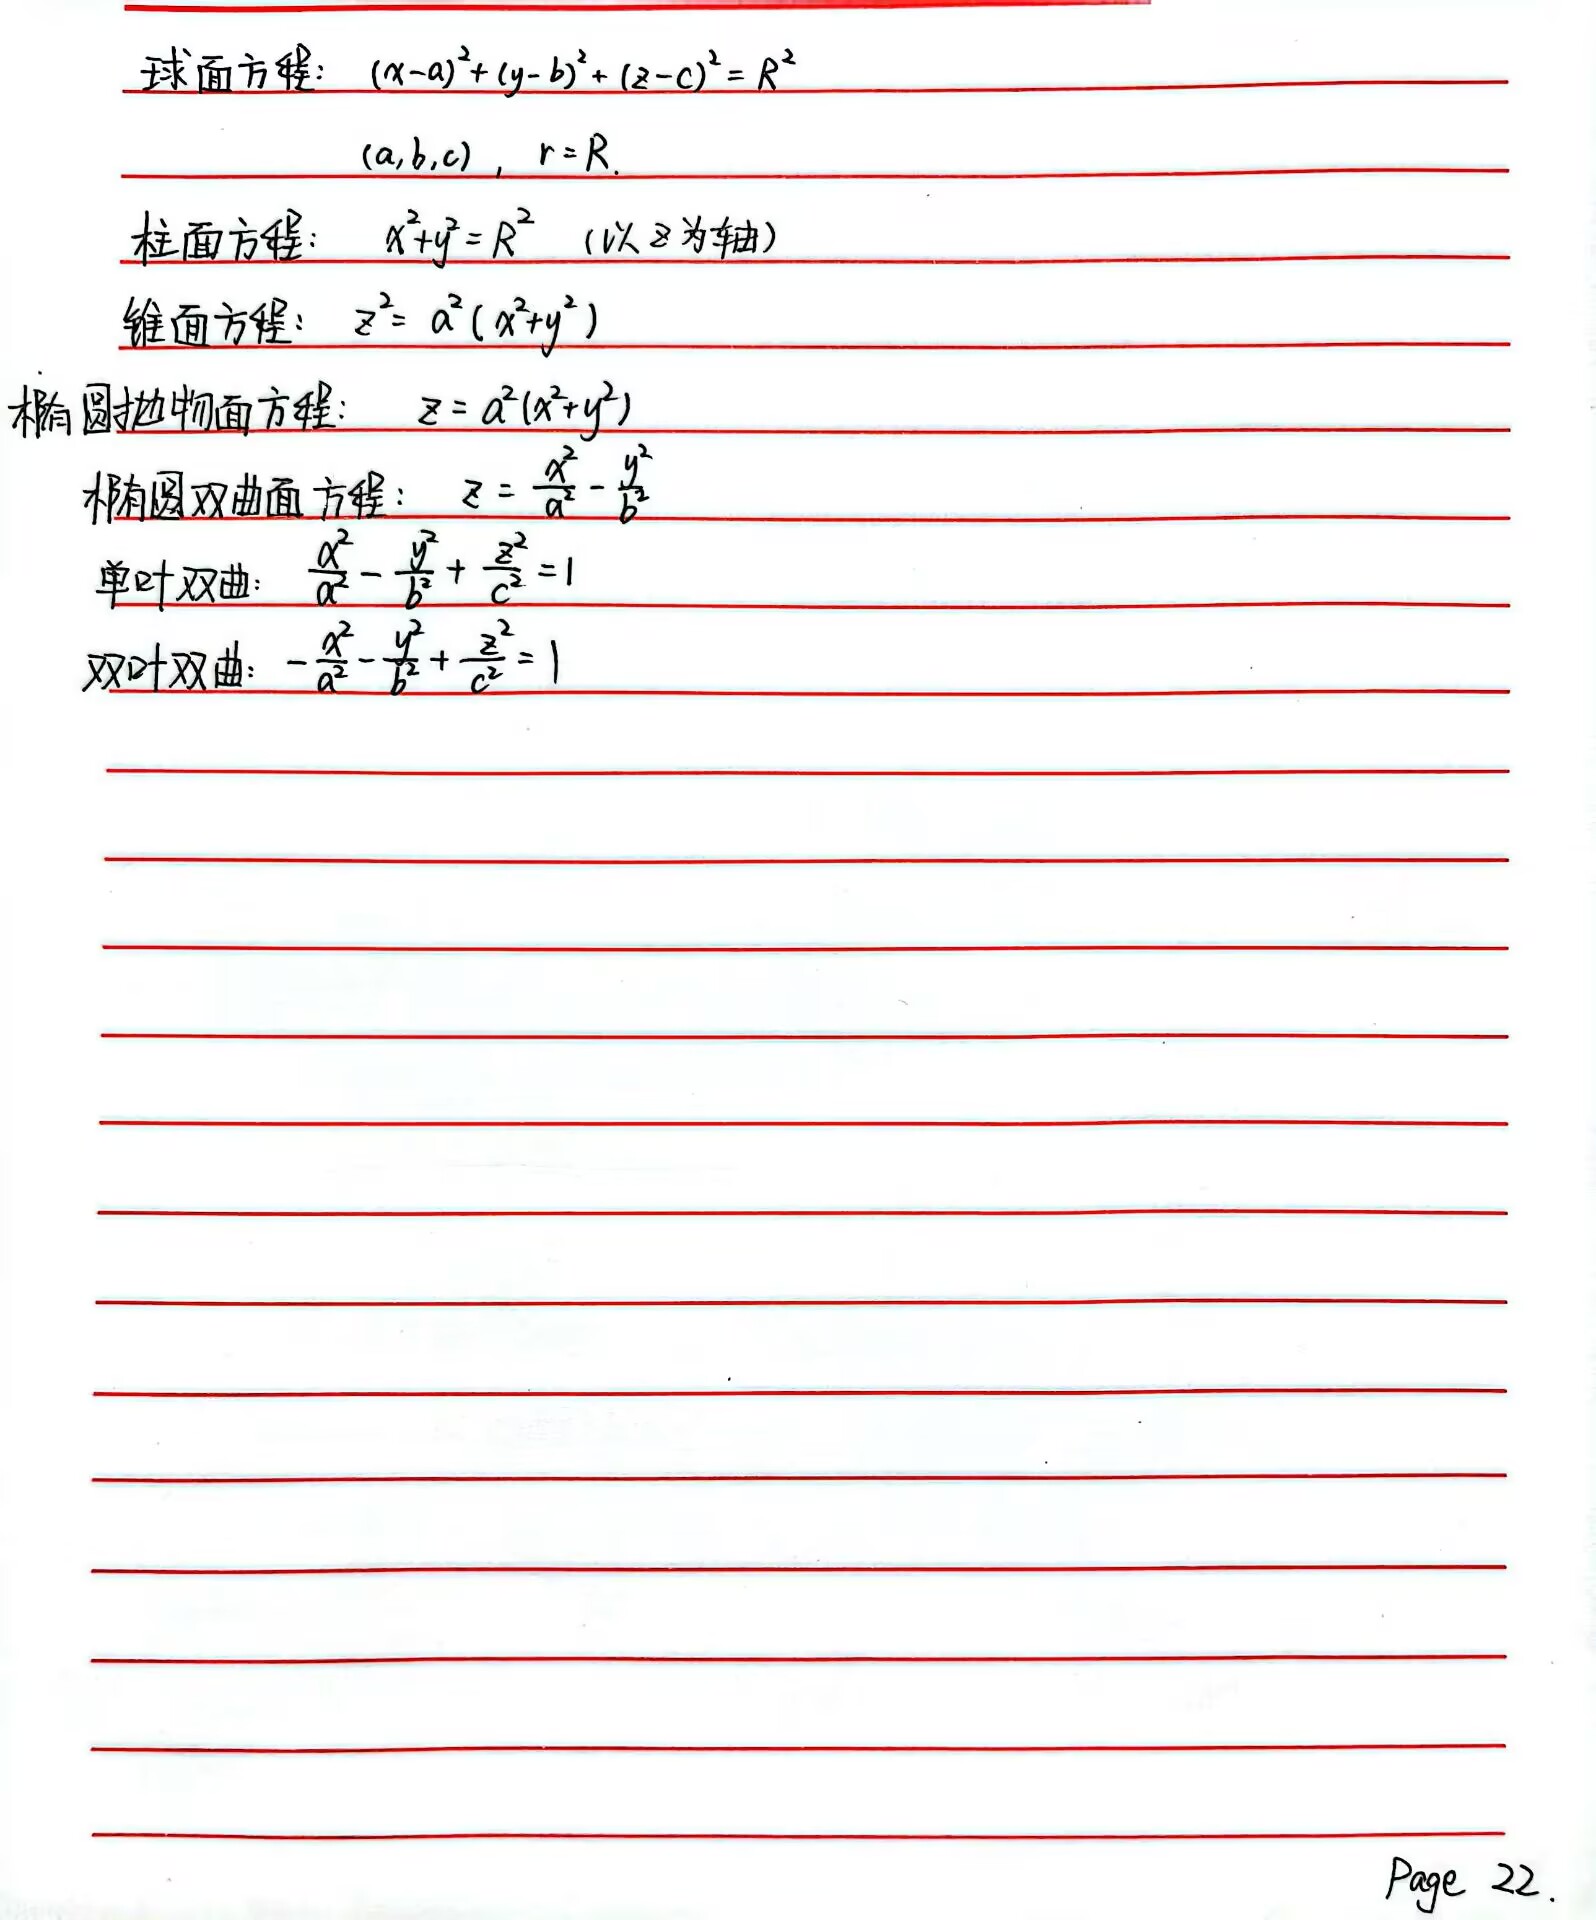 球面方程: (x-a)²+(y-b)²+(z-c)²=R²
(a,b,c), r=R.
柱面方程: x²+y²=R² (以z为轴)
锥面方程: z²=a²(x²+y²)
椭圆抛物面方程: z=a²(x²+y²)
椭圆双曲面方程: z=x²/a²-y²/b²
单叶双曲: x²/a²-y²/b²+z²/c²=1
双叶双曲: -x²/a²-y²/b²+z²/c²=1
Page 22.